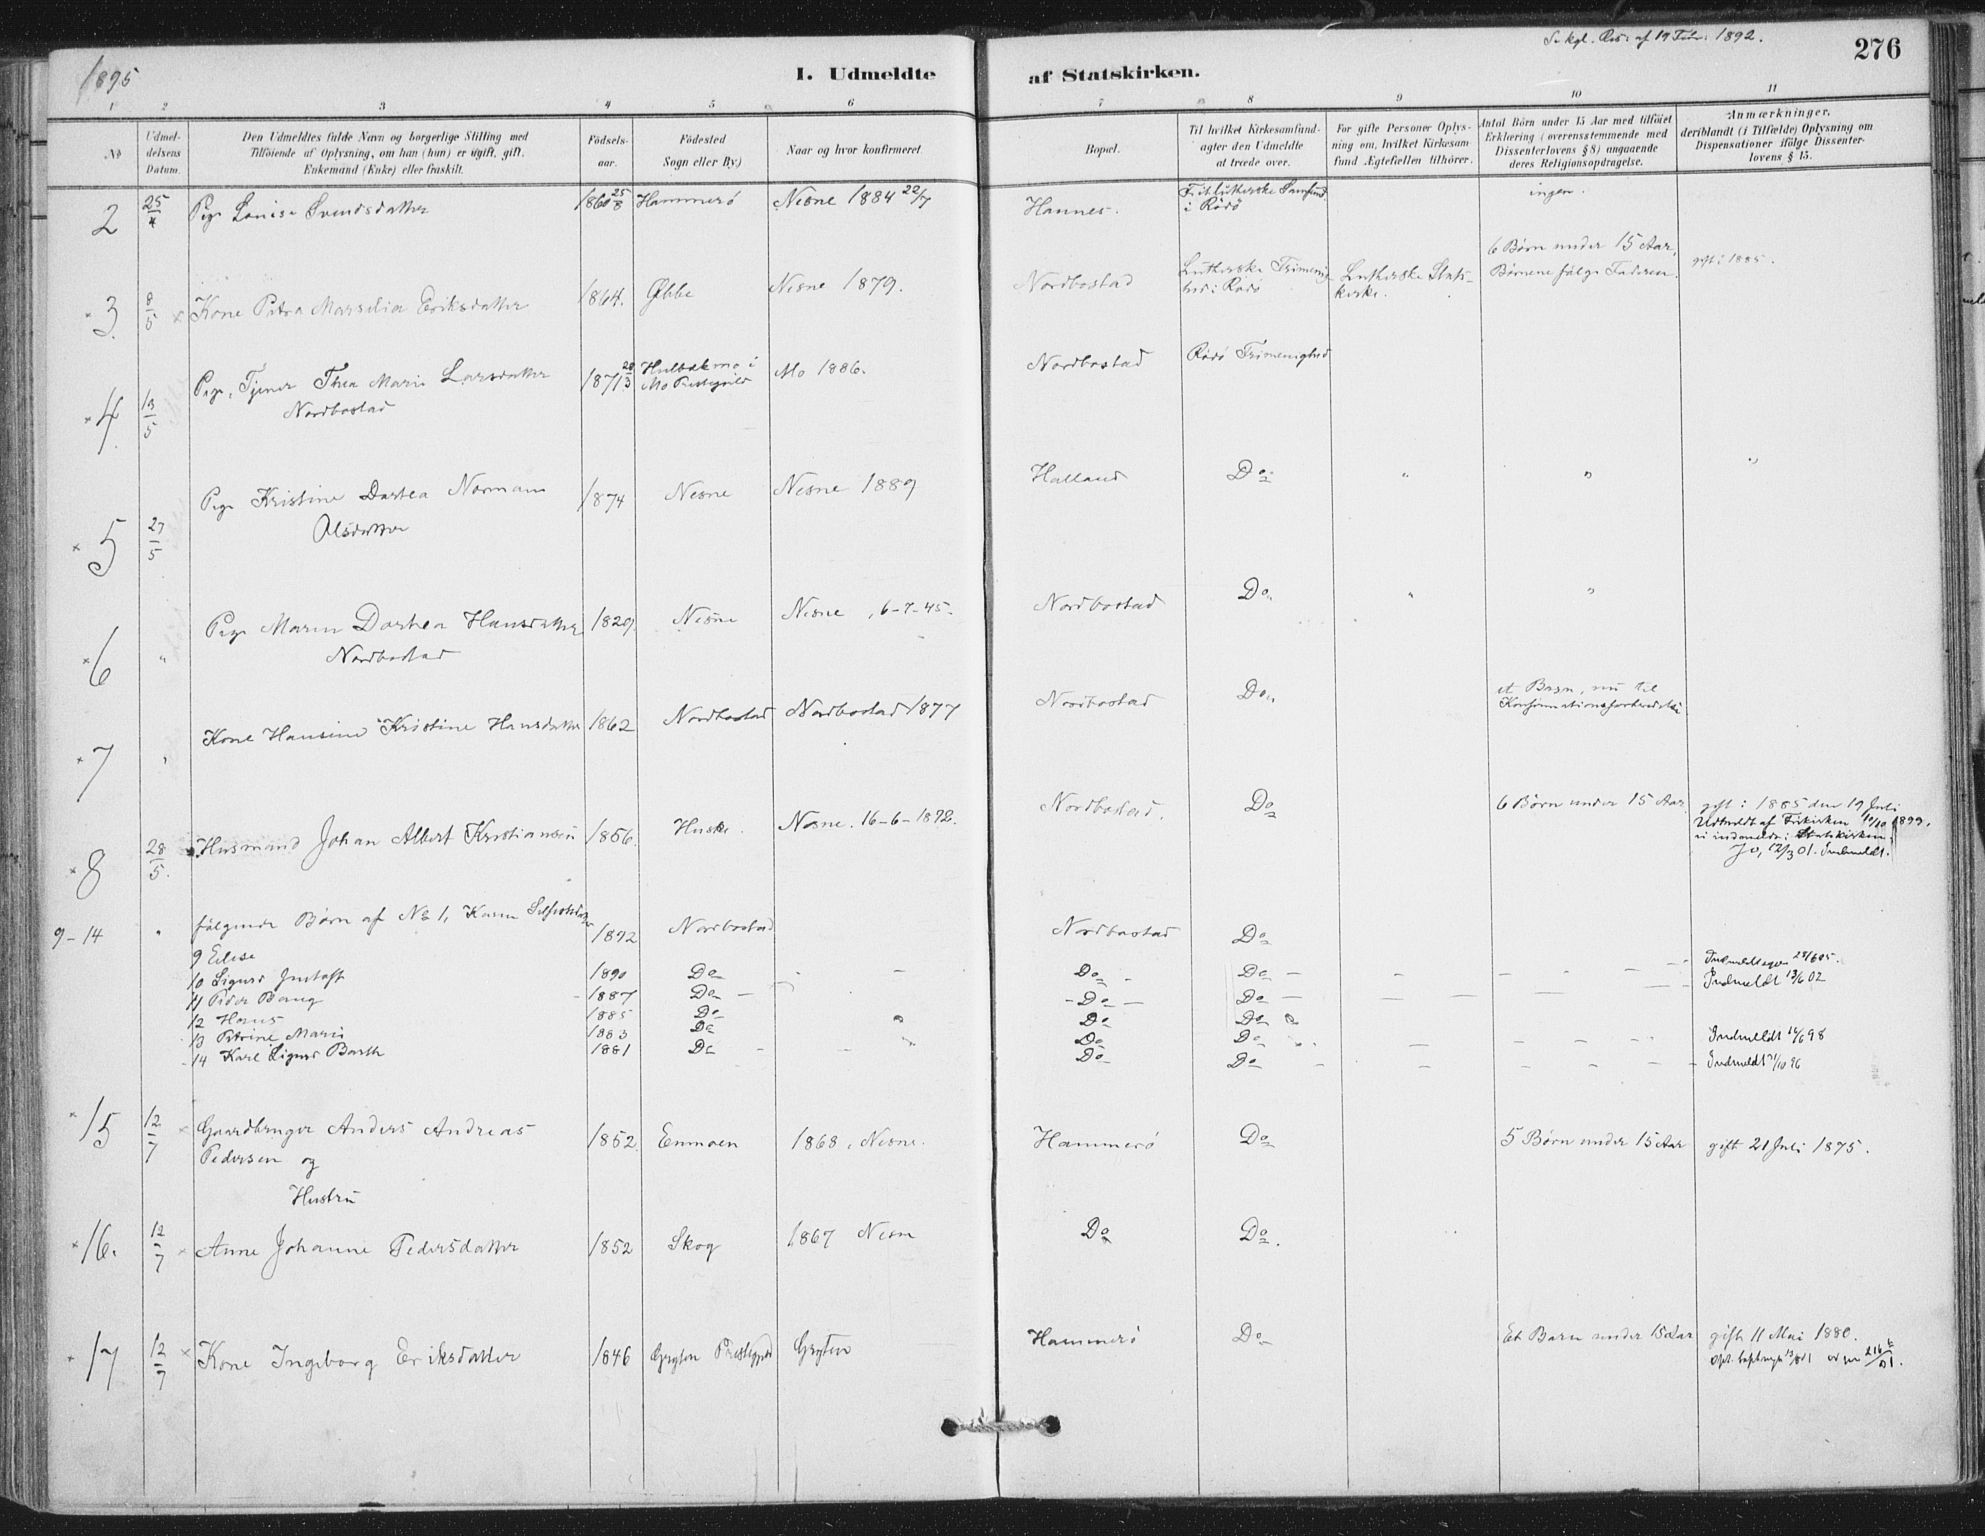 1895
I. Udmeldte
af Statskirken.
Se kgl. Res. af 19 Febr. 1892.
276
1 2 3 4 5 6 7 8 9 10 11
No
Udmel-
delsens
Datum.
Den Udmeldtes fulde Navn og borgerlige Stilling med
Tilföiende af Oplysning, om han (hun) er ugift, gift,
Enkemand (Enke) eller fraskilt.
Födsels-
aar.
Födested
Sogn eller By.)
Naar og hvor konfirmeret.
Bopæl.
Til hvilket Kirkesamfund
agter den Udmeldte
at træde over.
For gifte Personer Oplys-
ning om, hvilket Kirkesam
fund Ægtefællen tilhörer.
Antal Börn under 15 Aar med tilföiet
Erklæring (overensstemmende med
Dissenterlovens § 8) angaaende
deres Religionsopdragelse.
Anmærkninger,
deriblandt (i Tilfælde) Oplysning om
Dispensationer ifölge Dissenter-
lovens § 15.
2 25/4 Pige Louise Svendsdatter 1860 25/8 Hammerö Nesne 1884 22/7 Hannes. Frilutherske Samfund ingen.
i Rödö
3 8/5 Kone Petra Marselia Eriksdatter 1864. Øbbe Nesne 1879. Nordbostad Lutherske Frimenig- Lutherske Stats- 6 Børn under 15 Aar, gift i 1885.
hed i Rödö kirke. Børnene følge Faderen.
4 13/5 Pige, Tjener Thea Marie Larsdatter 1871 28/3 i Mo 1886. Nordbostad Rödö Frimenighed
Nordbostad Mo Prestegjeld
5 27/5 Pige Kristine Dortea Normann 1874 Nesne Nesne 1889 Halland Do " " "
Olsdatter
6 " Pige Maren Dortea Hansdatter 1829 Nesne Nesne, 6-7-45. Nordbostad Do " "
Nordbostad
7 " Kone Hansine Kristine Hansdatter 1862 Nordbostad Nordbostad 1877 Nordbostad Do et Barn, nu til
Konfirmationsforberedelse
8 28/5. Husmand Johan Albert Kristiansen 1856. Huske. Nesne. 16-6-1872. Nordbostad. Do 6 Børn under 15 Aar gift i 1885 den 19 Juli
Udmeldt af Frikirken 10/10 1899.
ei indmeldt i Statskirken.
Jo, 12/3 01. Indmeldt.
9-14 " følgende Børn af No 1, Karen
9 Elise 1892 Nordbostad Nordbostad Do
10 Sigurd Gustaf 1890 Do Do Do 28/6 05.
11 Peder Bang 1887 Do Do Do Indmeldt 13/6 02
12 Hans 1885 Do Do Do
13 Petrine Marie 1883 Do Do Do Indmeldt 12/6 98
14 Karl Sigurd Barth 1881 Do Do Do Indmeldt 21/10 96
15 12/7 Gaardbruger Anders Andreas 1852. Enmoen 1868, Nesne. Hammerö Do 5 Børn under 15 Aar gift 21 Juli 1875.
Pedersen og
Hustru
16. 12/7 Anne Johanne Pedersdatter 1852 Skog 1867 Nesne Do Do.
17 12/7 Kone Ingeborg Eriksdatter 1846 Grytten Prestegjeld Grytten Hammerö Do Et Barn under 15 Aar gift 11 Mai 1880.